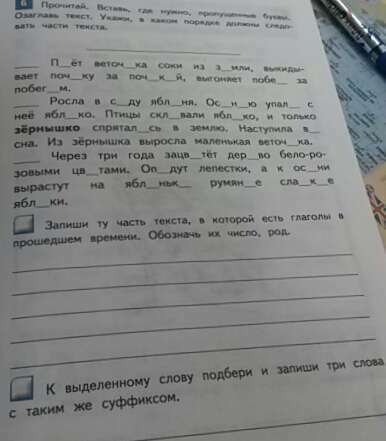 6 Прочитай. Вставь, где нужно, пропущенные буквы.
Озаглавь текст. Укажи, в каком порядке должны следо-
вать части текста.
____ П__ёт веточ__ка соки из з__мли, выкиды-
вает поч__ку за поч__к__й, выгоняет побе__ за
побег__м.
____ Росла в с__ду ябл__ня. Ос__н__ю упал__ с
неё ябл__ко. Птицы скл__вали ябл__ко, и только
зёрнышко спрятал__сь в землю. Наступила в__
сна. Из зёрнышка выросла маленькая веточ__ка.
____ Через три года зацв__тёт дер__во бело-ро-
зовыми цв__тами. Оп__дут лепестки, а к ос__ни
вырастут на ябл__ньк__ румян__е сла__к__е
ябл__ки.
Запиши ту часть текста, в которой есть глаголы в
прошедшем времени. Обозначь их число, род.
К выделенному слову подбери и запиши три слова
с таким же суффиксом.